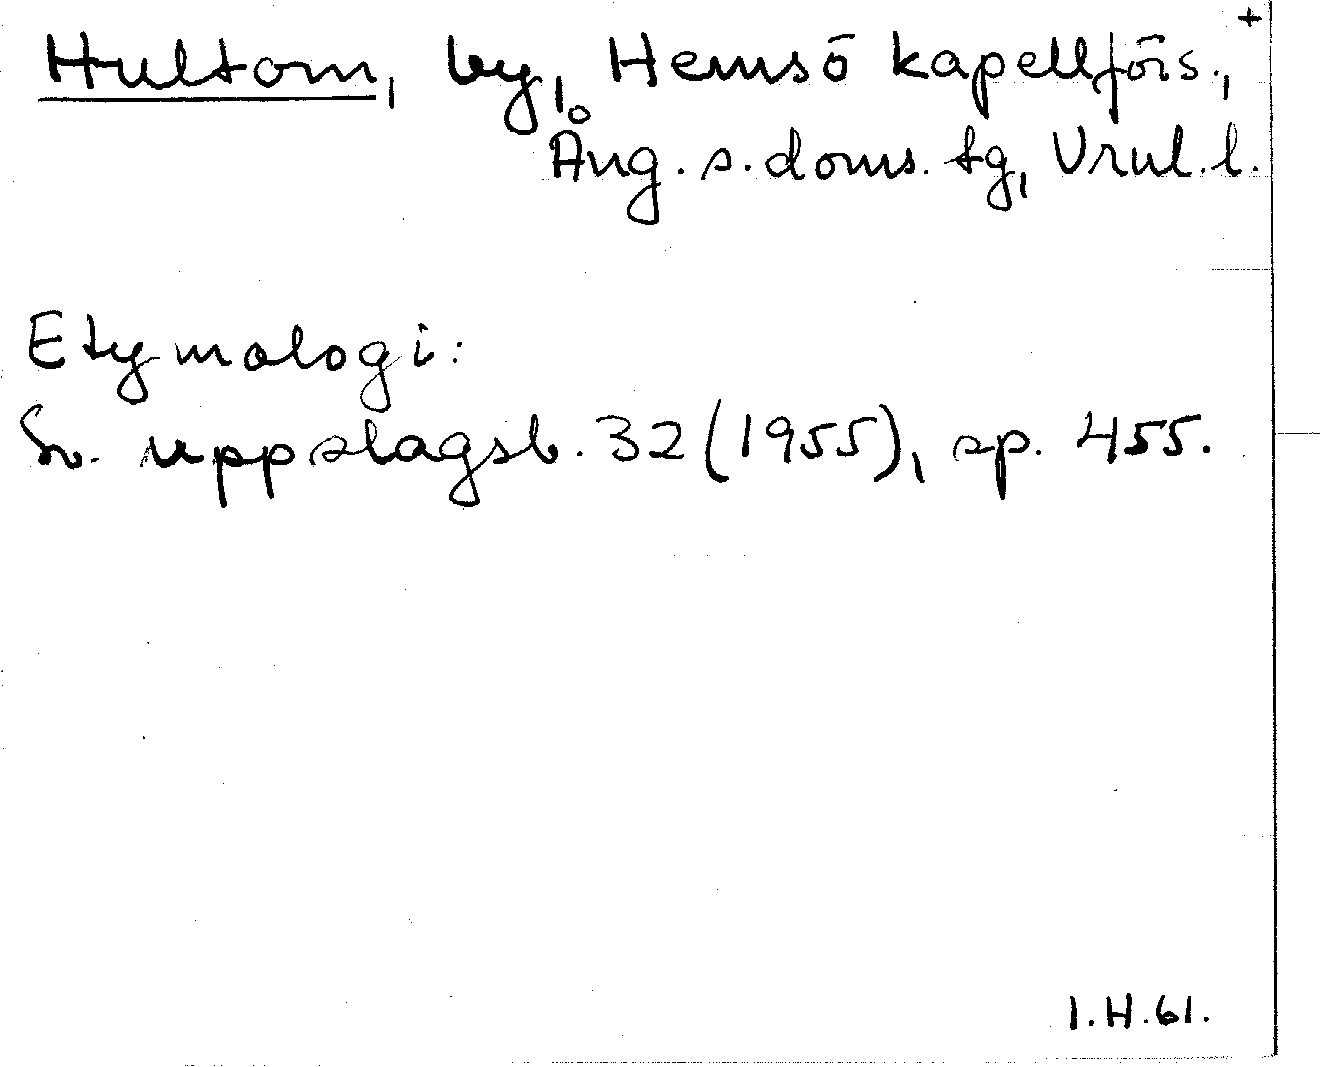 +
Hultom, by, Hemsö kapellförs.,
Ång. s. doms. tg, Vrnl. l.
Etymologi:
Sv. uppslagsb. 32 (1955), sp. 455.
I.H.61.